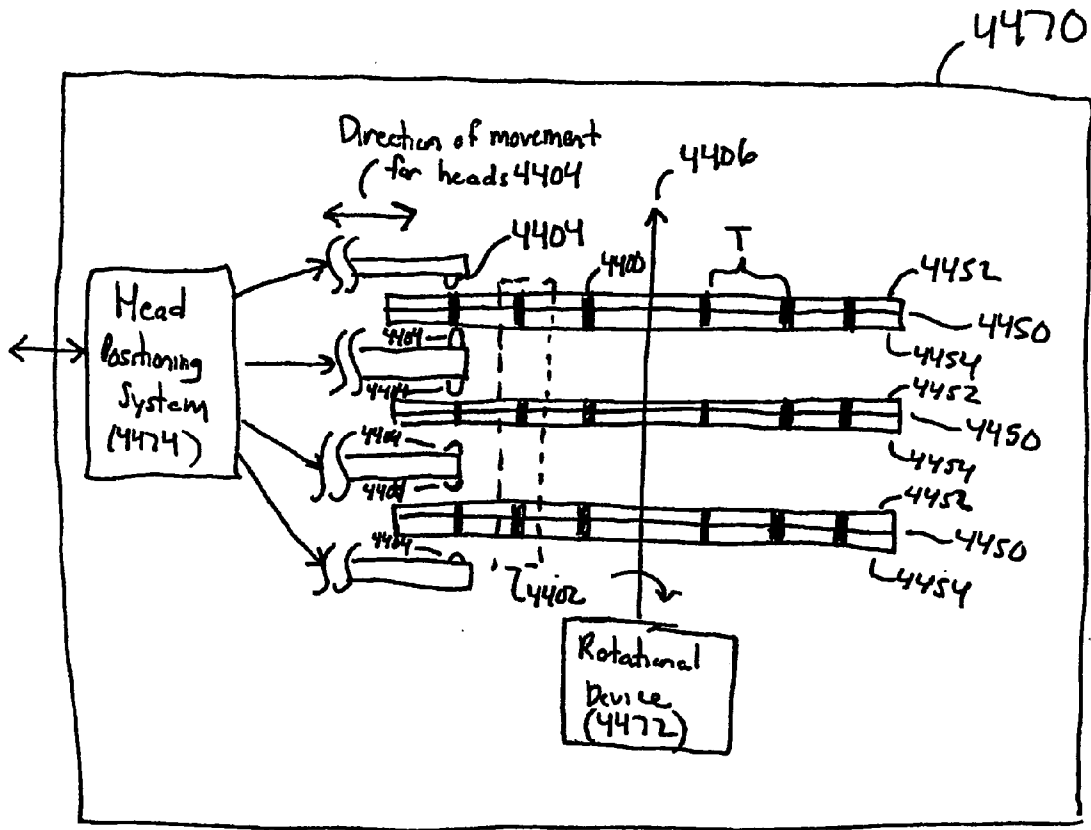 4470
Direction of movement
for heads 4404
4406
4404
4400
T
4452
4450
4454
Head
Positioning
System
(4474)
4404
4404
4452
4450
4454
4404
4404
4452
4450
4454
4404
4402
Rotational
Device
(4472)